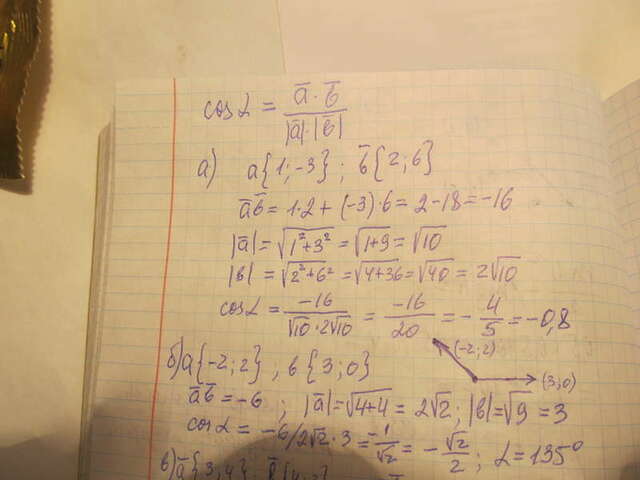 cos α = a̅ · b̅ / |a̅|·|b̅|
а) a{1;-3} ; b̅{2;6}
a̅b̅ = 1·2 + (-3)·6 = 2-18 = -16
|a̅| = √(1²+3²) = √(1+9) = √10
|b| = √(2²+6²) = √(4+36) = √40 = 2√10
cos α = -16/(√10·2√10) = -16/20 = -4/5 = -0,8
(-2;2)
б) a{-2;2} ; b{3;0}
(3;0)
a̅b̅ = -6 ; |a̅| = √(4+4) = 2√2 ; |b| = √9 = 3
cos α = -6/2√2·3 = -1/√2 = -√2/2 ; α = 135°
в) a̅{3,4}